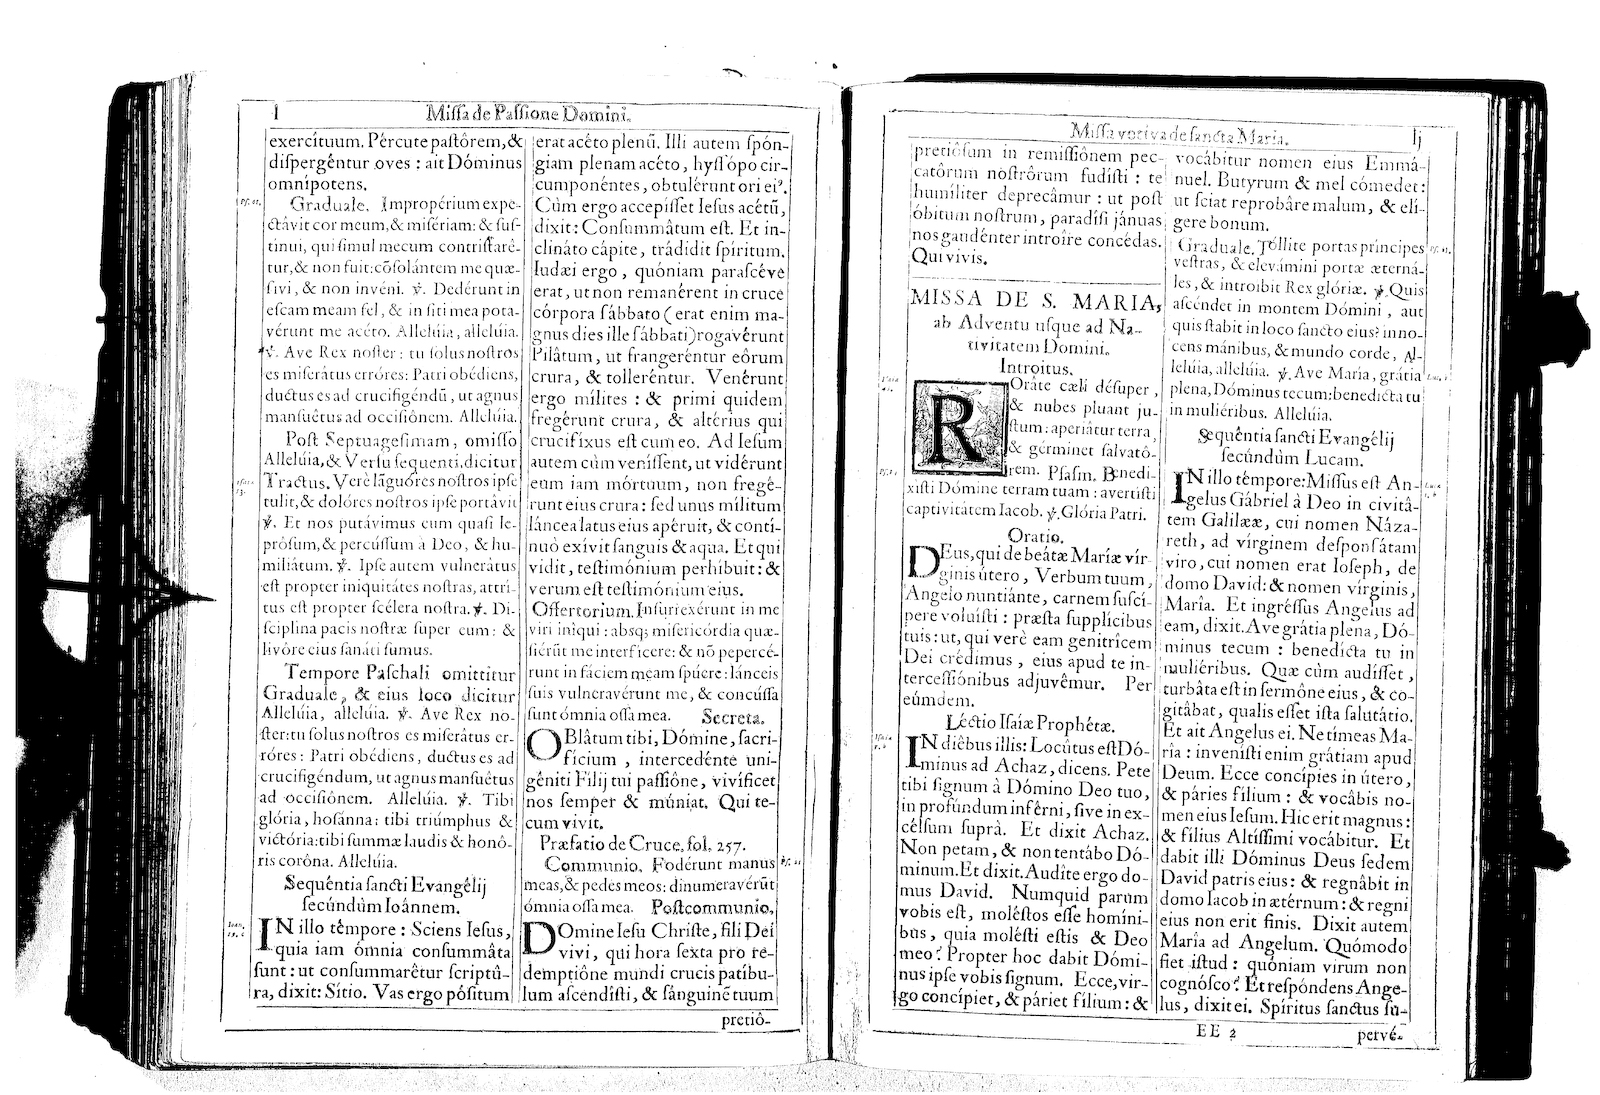 l
Miſſa de Paſſione Domini.
exercítuum. Pércute paſtôrem, &
diſpergéntur oves : ait Dóminus
omnípotens.
Graduale. Impropérium expe-
ctâvit cor meum, & miſériam: & ſuſ-
tinui, qui ſimul mecum contriſtaré-
tur, & non fuit: cõſolántem me quæ-
ſivi, & non invéni. ℣. Dedérunt in
eſcam meam fel, & in ſiti mea pota-
vérunt me acéto. Allelúia, allelúia.
℣. Ave Rex noſter: tu ſolus noſtros
es miſerâtus errôres: Patri obédiens,
ductus es ad crucifigéndũ, ut agnus
manſuêtus ad occiſiônem. Allelúia.
Poſt Septuageſimam, omiſſo
Allelúia, & Verſu ſequenti, dicitur
Tractus. Verè lãguóres noſtros ipſe
tulit, & dolóres noſtros ipſe portâvit
℣. Et nos putávimus eum quaſi le-
prôſum, & percúſſum à Deo, & hu-
miliâtum. ℣. Ipſe autem vulnerâtus
eſt propter iniquitátes noſtras, attrí-
tus eſt propter ſcélera noſtra. ℣. Di-
ſciplina pacis noſtræ ſuper eum: &
livôre eius ſanáti ſumus.
Tempore Paſchali omittitur
Graduale, & eius loco dicitur
Allelúia, allelúia. ℣. Ave Rex no-
ſter: tu ſolus noſtros es miſerátus er-
róres: Patri obédiens, ductus es ad
crucifigéndum, ut agnus manſuêtus
ad occiſiônem. Allelúia. ℣. Tibi
glória, hoſánna: tibi triúmphus &
victória: tibi ſummæ laudis & honô-
ris coróna. Allelúia.
Sequéntia ſancti Evangélij
ſecúndùm Ioánnem.
IN illo têmpore: Sciens Ieſus,
quia iam ómnia conſummâta
ſunt: ut conſummarêtur ſcriptû-
ra, dixit: Sítio. Vas ergo póſitum
erat acéto plenũ. Illi autem ſpón-
giam plenam acéto, hyſſópo cir-
cumponéntes, obtulérunt ori eiꝰ.
Cùm ergo accepiſſet Ieſus acétũ,
dixit: Conſummâtum eſt. Et in-
clináto cápite, trádidit ſpíritum.
Iudæi ergo, quóniam paraſcéve
erat, ut non remanérent in cruce
córpora ſábbato (erat enim ma-
gnus dies ille ſábbati) rogavérunt
Pilâtum, ut frangeréntur eôrum
crura, & tolleréntur. Venérunt
ergo mílites : & primi quidem
fregérunt crura, & altérius qui
crucifíxus eſt cum eo. Ad Ieſum
autem cùm veníſſent, ut vidérunt
eum iam mórtuum, non fregé-
runt eius crura: ſed unus mílitum
láncea latus eius apéruit, & contí-
nuò exívit ſanguis & aqua. Et qui
vidit, teſtimónium perhíbuit: &
verum eſt teſtimónium eius.
Offertorium. Inſurrexérunt in me
viri iniqui: absq; miſericórdia quæ-
ſiérũt me interfícere: & nõ pepercé-
runt in fáciem meam ſpúere: lánceis
ſuis vulneravérunt me, & concúſſa
ſunt ómnia oſſa mea. Secreta.
OBlâtum tibi, Dómine, ſacri-
fícium, intercedénte uni-
géniti Filij tui paſſiône, vivíficet
nos ſemper & múniat. Qui te-
cum vivit.
Præfatio de Cruce, fol, 257.
Communio. Fodérunt manus
meas, & pedes meos: dinumeravérũt
ómnia oſſa mea. Poſtcommunio.
DOmine Ieſu Chriſte, fili Dei
vivi, qui hora ſexta pro re-
demptiône mundi crucis patíbu-
lum aſcendíſti, & ſánguinẽ tuum
pretiô-
Miſſa votiva de ſancta Maria.
lj
pretiôſum in remiſſiônem pec-
catôrum noſtrôrum fudiſti : te
humíliter deprecâmur : ut poſt
óbitum noſtrum, paradíſi jánuas
nos gaudénter introíre concédas.
Qui vivis.
MISSA DE S. MARIA,
ab Adventu uſque ad Na-
tivitatem Domini.
Introitus.
ROráte cæli déſuper,
& nubes pluant ju-
ſtum: aperiâtur terra,
& gérminet ſalvatô-
rem. Pſalm. Benedi-
xíſti Dómine terram tuam: avertíſti
captivitátem Iacob. ℣. Glória Patri.
Oratio.
DEus, qui de beátæ Maríæ vír-
ginis útero, Verbum tuum,
Angelo nuntiánte, carnem ſuſcí-
pere voluíſti : præſta ſupplícibus
tuis: ut, qui verè eam genitrîcem
Dei crédimus, eius apud te in-
terceſſiónibus adjuvêmur. Per
eúmdem.
Léctio Iſaíæ Prophétæ.
IN diêbus illis: Locútus eſt Dó-
minus ad Achaz, dicens. Pete
tibi ſignum à Dómino Deo tuo,
in profúndum inférni, ſive in ex-
célſum ſuprà. Et dixit Achaz.
Non petam, & non tentábo Dó-
minum. Et dixit. Audíte ergo do-
mus David. Numquid parum
vobis eſt, moléſtos eſſe homíni-
bus, quia moléſti eſtis & Deo
meo? Propter hoc dabit Dómi-
nus ipſe vobis ſignum. Ecce, vir-
go concípiet, & páriet fílium: &
vocábitur nomen eius Emmá-
nuel. Butyrum & mel cómedet:
ut ſciat reprobâre malum, & elí-
gere bonum.
Graduale. Tóllite portas príncipes
veſtras, & elevámini portæ æterná-
les, & introíbit Rex glóriæ. ℣. Quis
aſcéndet in montem Dómini, aut
quis ſtabit in loco ſancto eius? inno-
cens mánibus, & mundo corde, Al-
lelúia, allelúia. ℣. Ave María, grátia
plena, Dóminus tecum: benedícta tu
in muliéribus. Allelúia.
Sequéntia ſancti Evangélij
ſecúndùm Lucam.
IN illo témpore: Miſſus eſt An-
gelus Gábriel à Deo in civitâ-
tem Galilææ, cui nomen Názа-
reth, ad vírginem deſponſátam
viro, cui nomen erat Ioſeph, de
domo David: & nomen vírginis,
María. Et ingréſſus Angelus ad
eam, dixit. Ave grátia plena, Dó-
minus tecum : benedícta tu in
muliéribus. Quæ cùm audíſſet,
turbáta eſt in ſermóne eius, & co-
gitâbat, qualis eſſet iſta ſalutátio.
Et ait Angelus ei. Ne tímeas Ma-
ría : inveníſti enim grátiam apud
Deum. Ecce concípies in útero,
& páries fílium: & vocâbis no-
men eius Ieſum. Hic erit magnus:
& fílius Altíſſimi vocábitur. Et
dabit illi Dóminus Deus ſedem
David patris eius: & regnâbit in
domo Iacob in ætérnum: & regni
eius non erit finis. Dixit autem
María ad Angelum. Quómodo
fiet iſtud: quóniam virum non
cognóſco? Et reſpóndens Ange-
lus, dixit ei. Spíritus ſanctus ſú-
EE 2
pervé-